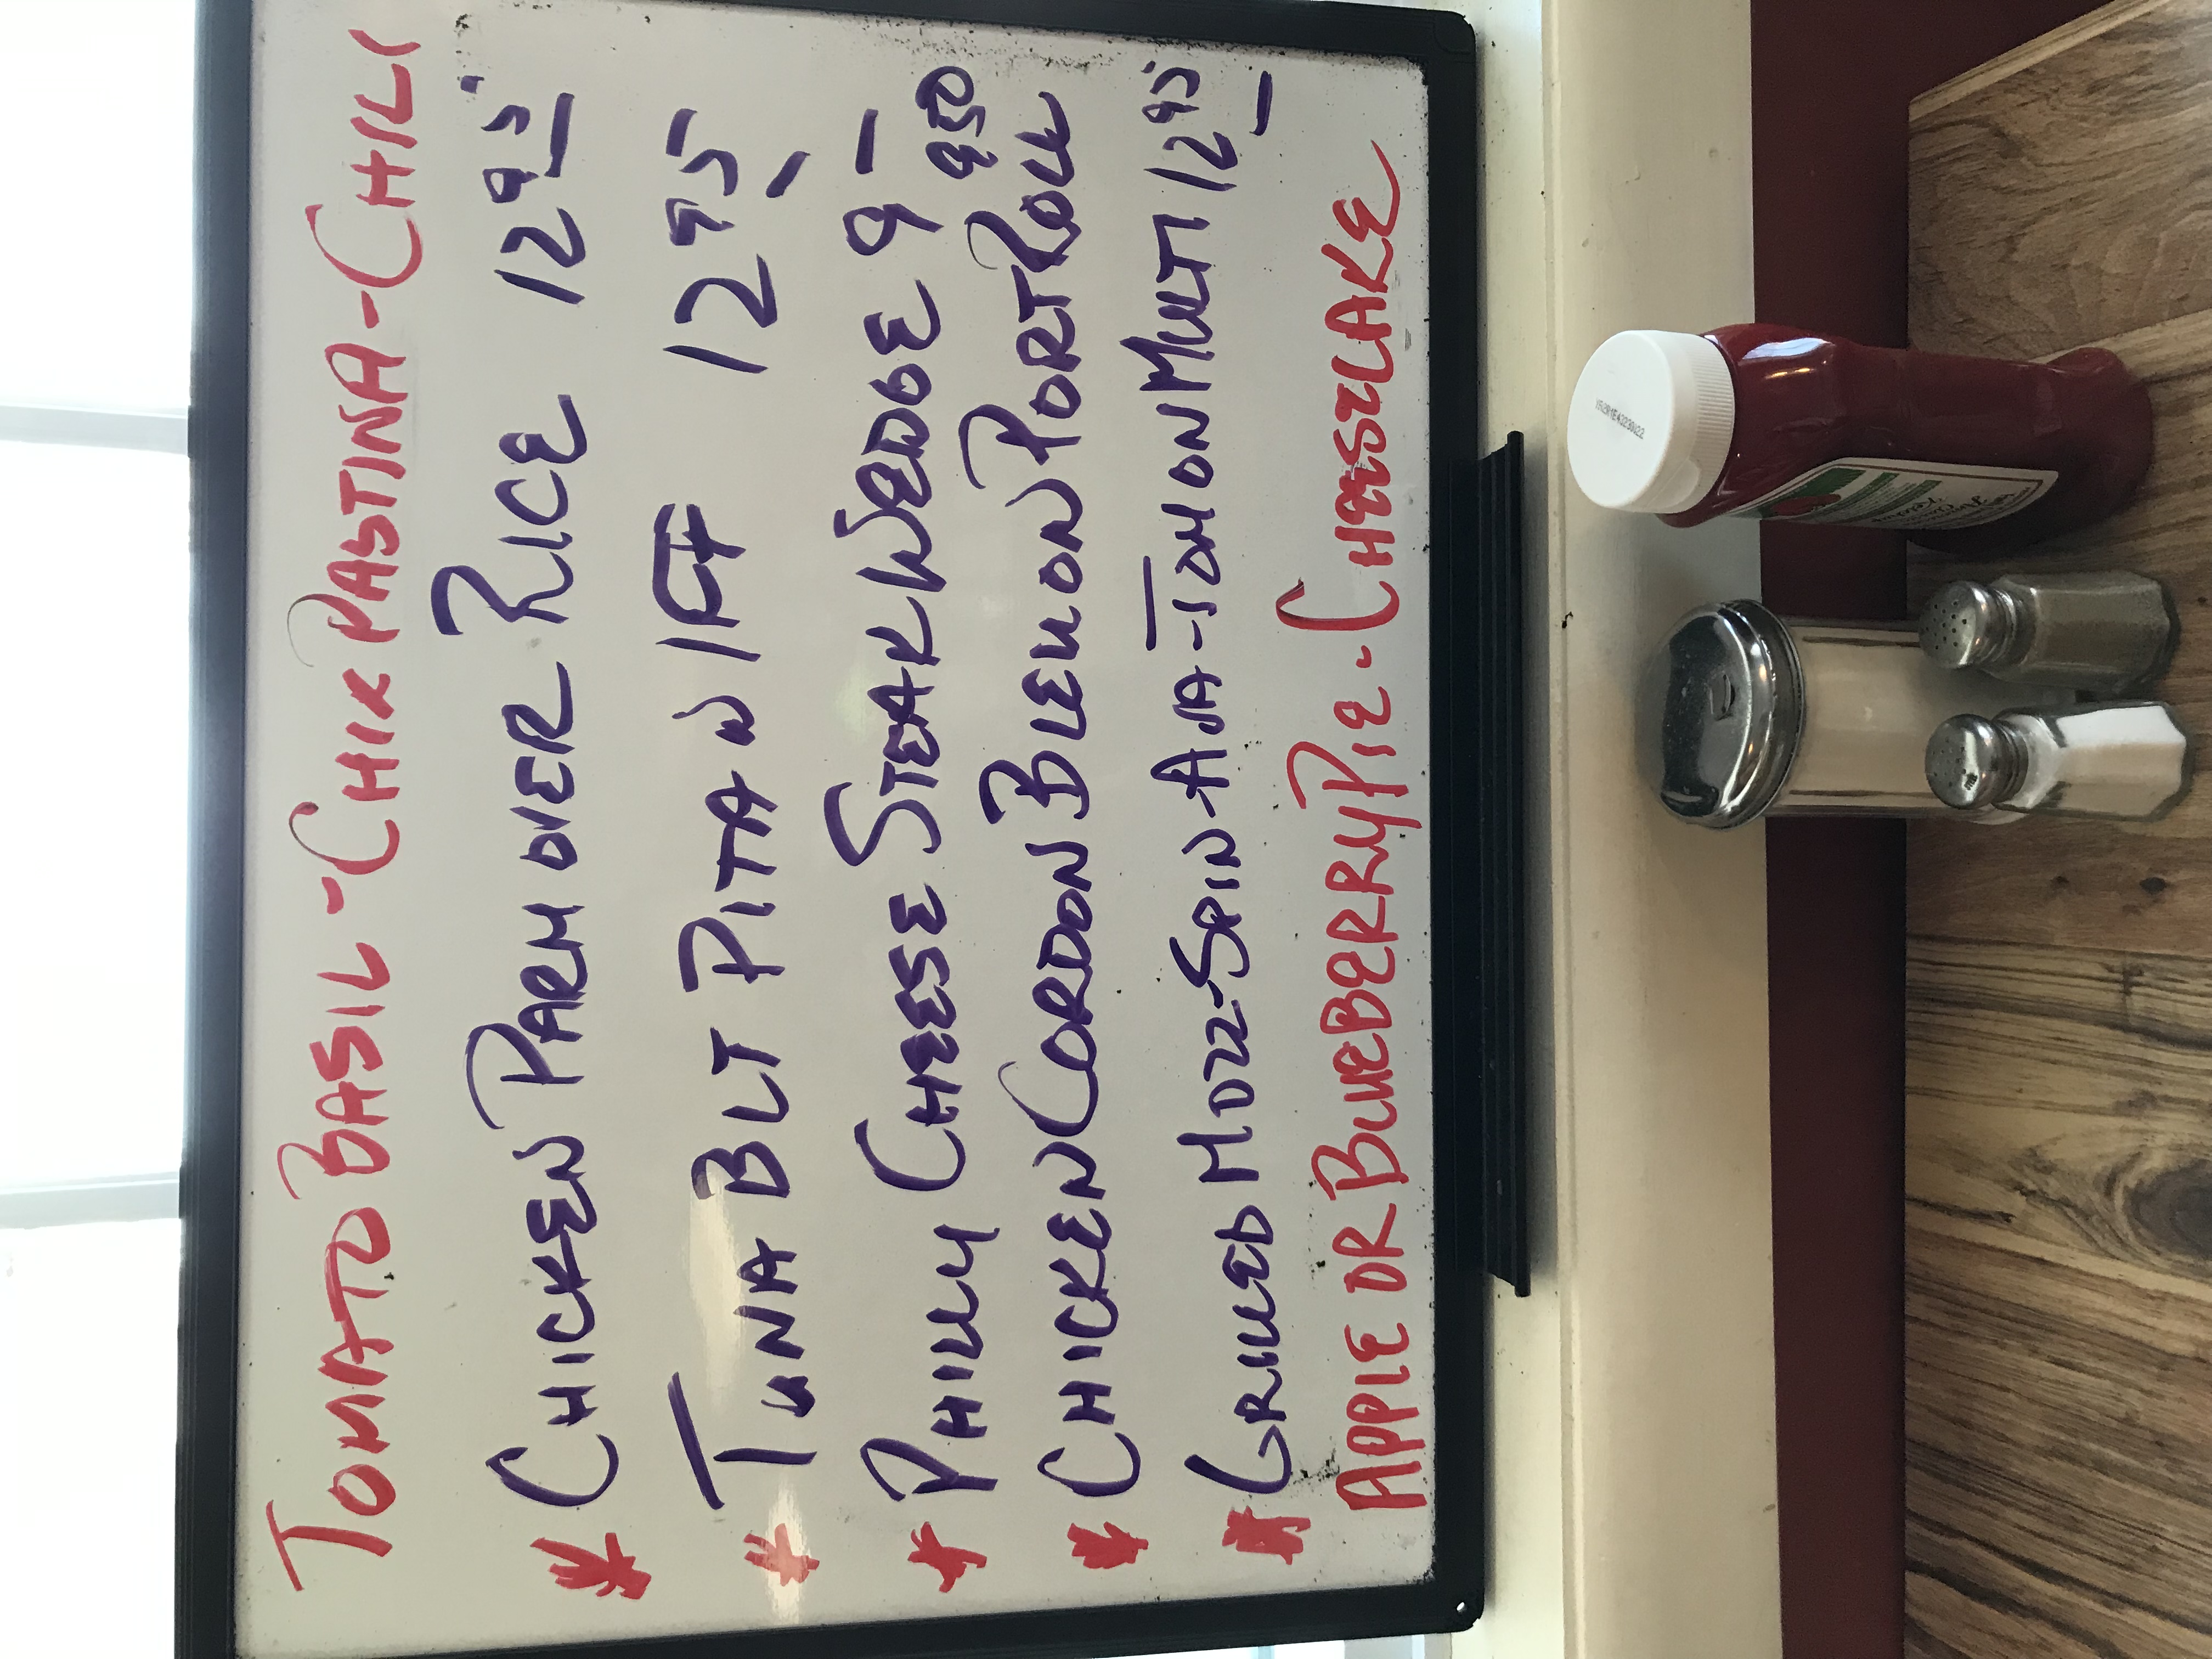 TOMATO BASIL - CHIK PASTINA - CHILI
* CHICKEN PARM OVER RICE 12 95
* TUNA BLT PITA W/FF 12 95
* PHILLY CHEESE STEAK WEDGE 9 -
* CHICKEN CORDON BLEU ON PORT ROLL 9 50
* GRILLED MOZZ - SPIN - - TOM ON MULTI 12 95
APPLE OR BLUEBERRY PIE - CHEESECAKE
Ketchup